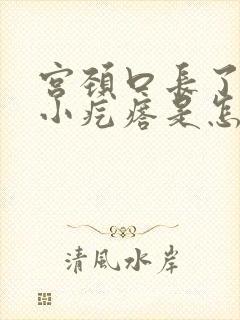 宮頚口長了
小疙瘩是怎
清風水岸